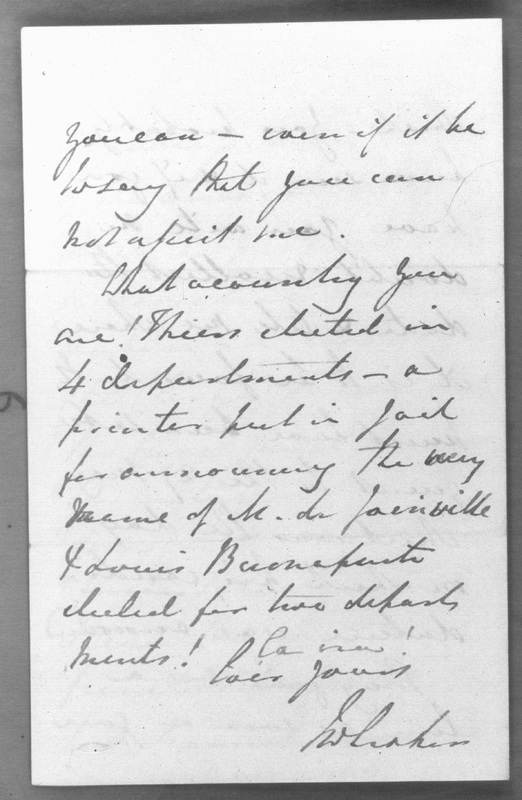 you can – even if it be
to say that you can
not assist me.
What a country you
are! Thiers elected in
4 departments – a
printer put in jail
for announcing the very
name of M. de Joinville
& Louis Buonaparte
elected for two depart
ments! Ca ira!
Ever yours
JWCroker